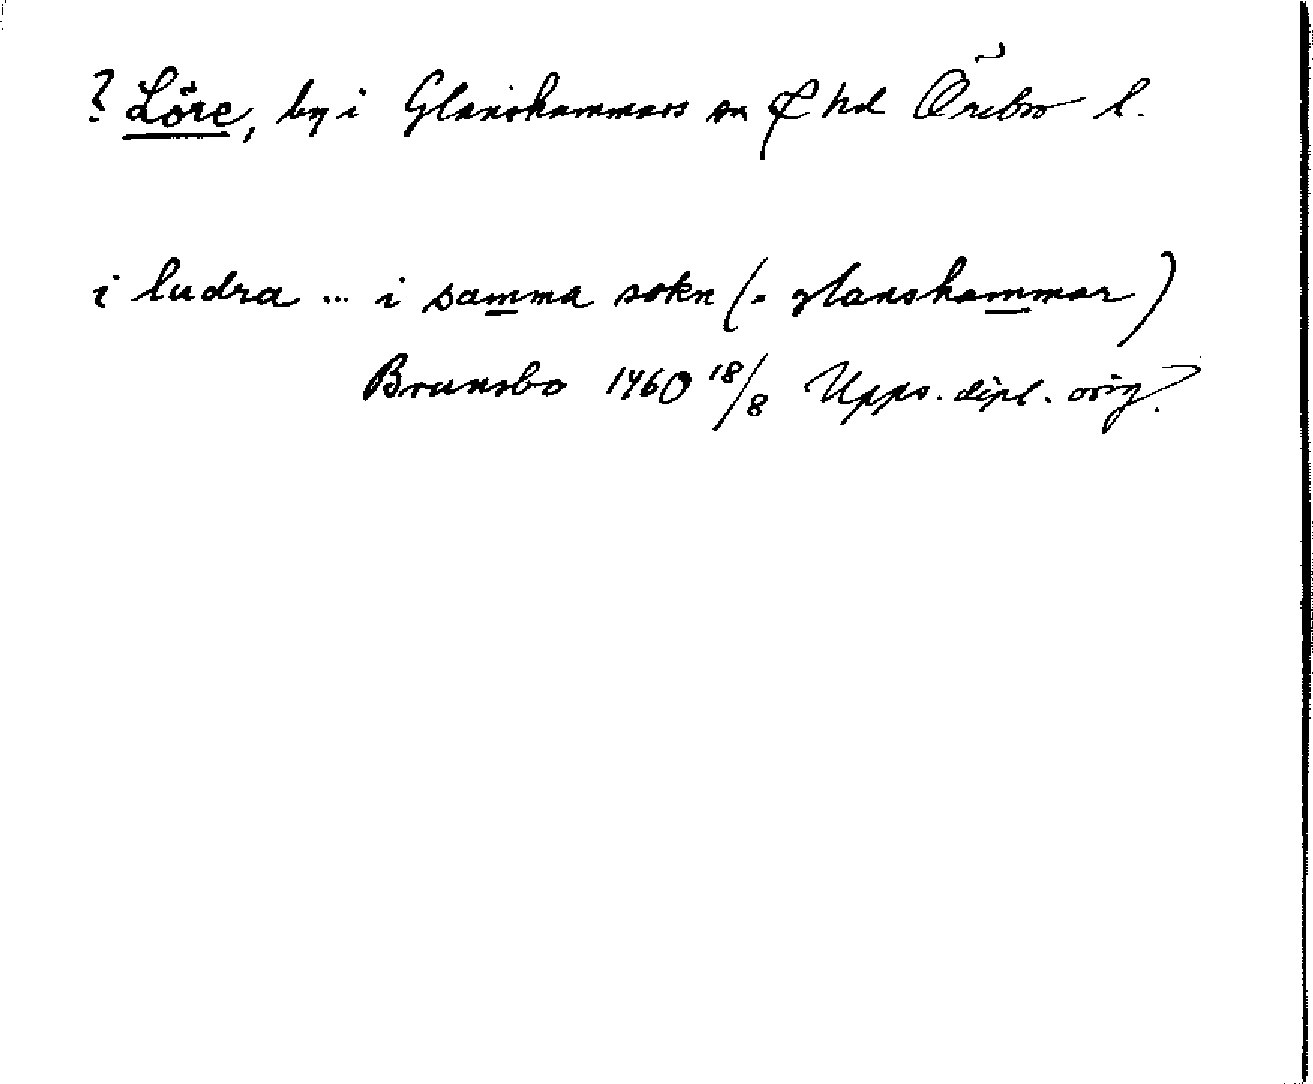 ? Löre, by i Glanshammars sn o hd Örebro l.
i ludra ... i samma sokn (. glanshammar)
Brunsbo 1460 18/8 Upps. dipl. orig.